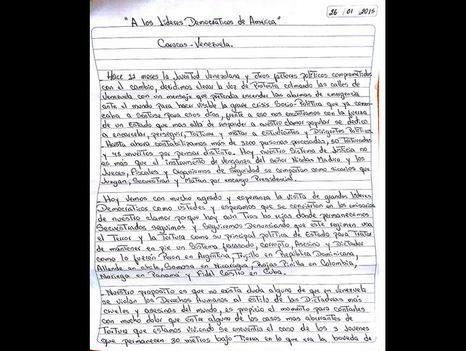 26 / 01 / 2015
"A los Líderes Democráticos de América"
Caracas - Venezuela.
Hace 11 meses la Juventud Venezolana y otros factores políticos comprometidos
con el cambio, decidimos alzar la voz de Protesta colmando las calles de
Venezuela con un mensaje que pretendía encender las alarmas de emergencia
ante el mundo para hacer visible la grave crisis Socio-Política que ya comen
zaba a sentirse para esos días, frente a eso nos encontramos con la fuerza
de un Estado que mas allá de responder a nuestro clamor popular se dedicó
a encarcelar, perseguir, torturar y matar a estudiantes y Dirigentes Políticos
Hasta ahora contabilizamos más de 3200 personas procesadas, 50 Torturados
y 43 muertos por pensar distinto. Hoy nuestro Sistema de Justicia no
es más que el instrumento de venganza del señor Nicolás Maduro y los
Jueces, Fiscales y Organismos de Seguridad se comportan como sicarios que
Juzgan, Secuestran y Matan por encargo Presidencial.
Hoy vemos con mucho agrado y esperanza la visita de grandes líderes
Democráticos como ustedes y esperamos que se conviertan en los emisarios
de nuestro clamor porque hoy aún tras las rejas donde permanecemos
Secuestrados seguimos y Seguiremos Denunciando que este regimen usa
el Terror y la tortura como su principal política de Estado para tratar
de mantener en pie un Sistema fracasado, corrupto, Asesino y Dictador
como lo fueron Peron en Argentina, Trujillo en República Dominicana,
Allende en chile, Somosa en Nicaragua, Rojas Pinilla en Colombia,
Noriega en Panamá y Fidel Castro en Cuba.
Nuestro proposito es que no exista duda alguna de que en Venezuela
se violan los Derechos Humanos al estilo de las Dictaduras más
crueles y asesinas del mundo, es propicio el momento para contarles
con mucho dolor que entre alguno de los casos mas aberrantes de
Tortura que estamos viviendo se encuentra el caso de los 3 Jovenes
que permanecen 30 metros bajo Tierra en lo que era la boveda de